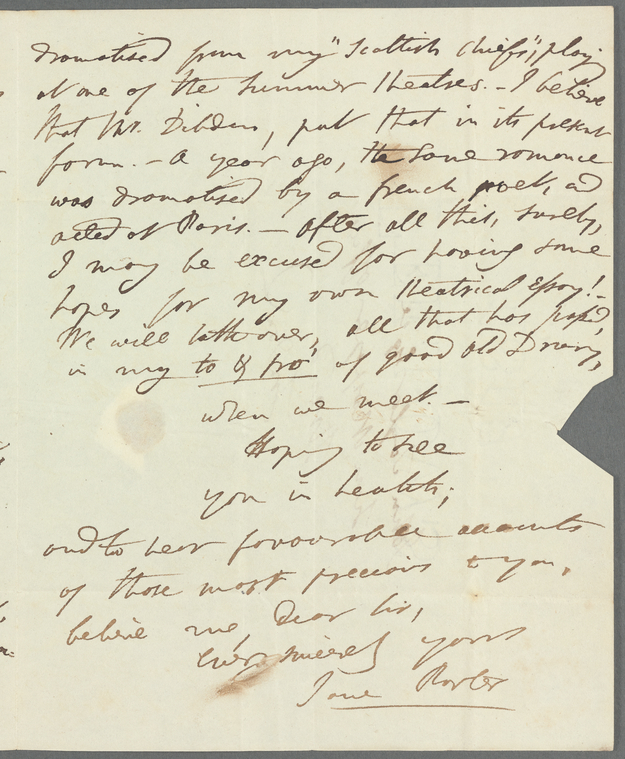 dramatised from my "Scottish Chiefs", play'd
at one of the Summer theatres. - I believe
that Mr. Dibdin, put that in its present
form. - A year ago, the same romance
was dramatised by a french poet, and
acted at Paris. - After all this, surely,
I may be excused for having some
hopes for my own theatrical Essay! -
We will talk over, all that has pass'd,
in my to & fro' of good old Drury,
when we meet. -
Hoping to see
you in health;
and to hear favourable accounts
of those most precious to you,
believe me, Dear Sir,
ever sincerely yours
Jane Porter